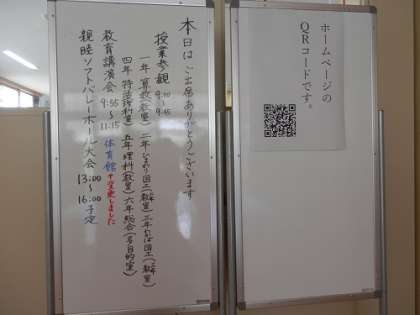 本日はご出席ありがとうございます
授業参観 9:00〜9:45
一年 算数(教室) 二年 図工(教室) 三年 図工(教室)
四年 理科室) 五年 理科(教室) 六年 総合(多目的室)
教育講演会 9:55〜11:15 体育館 変更しました
親睦ソフトバレーボール大会 13:00〜16:00 予定
ホームページの
QRコードです。